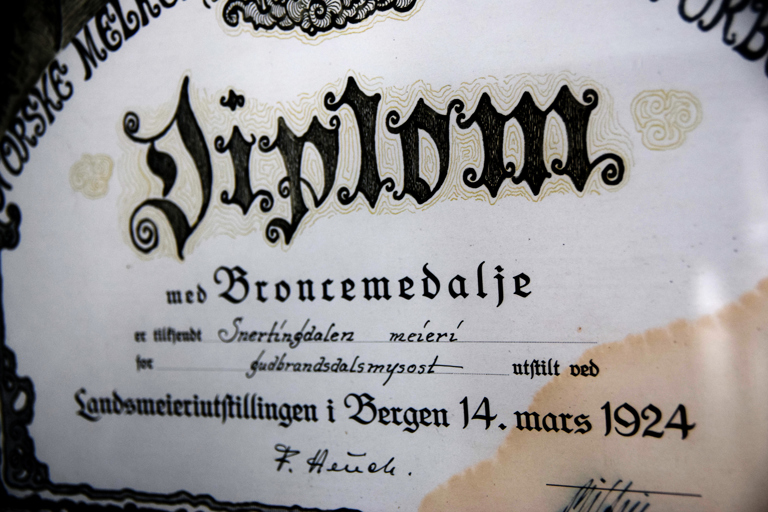 NORSKE MELK
Diplom
med Broncemedalje
er tilkjendt Snertingdalen meieri
for gudbrandsdalsmysost utstilt ved
Landsmeieriutstillingen i Bergen 14. mars 1924
F. Heuch.